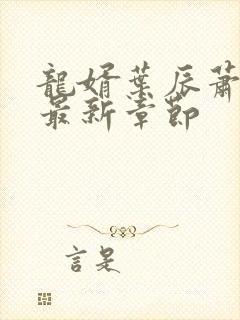 龍婿葉辰蕭
最新章節
言是